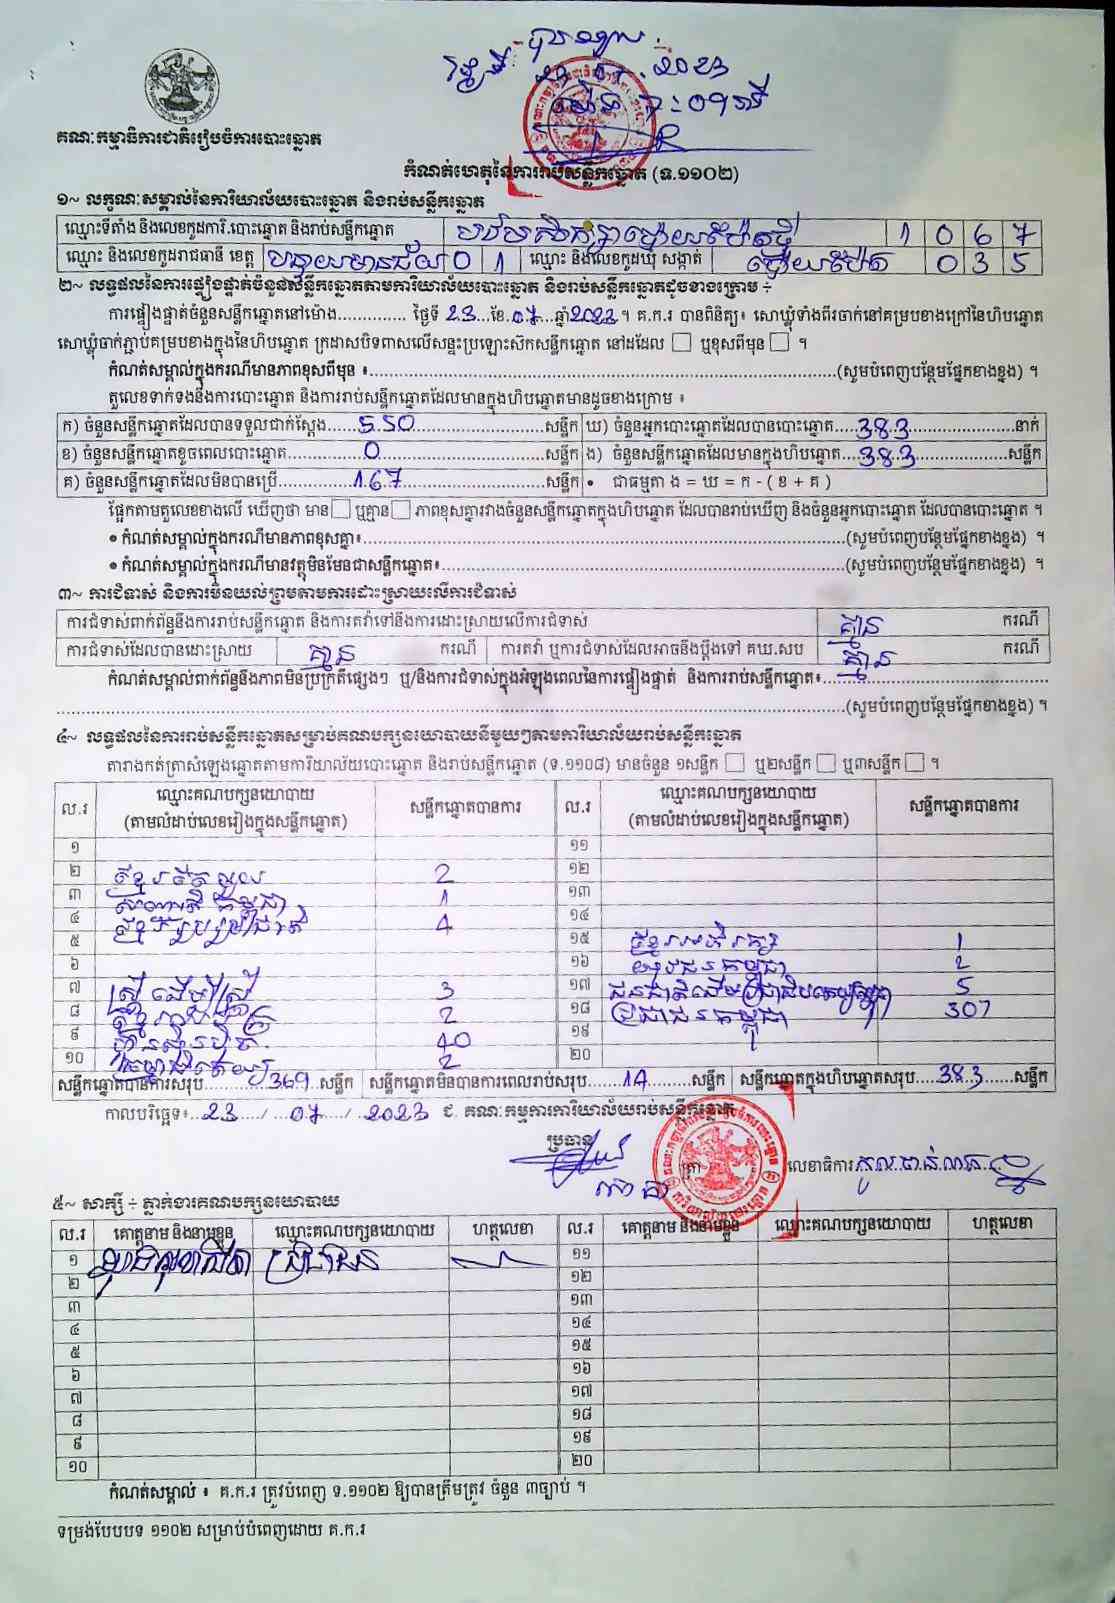 ២០២៣
គណៈកម្មាធិការជាតិរៀបចំការបោះឆ្នោត
កំណត់ហេតុនៃការរាប់សន្លឹកឆ្នោត (ទ.១១០២)
១~ លក្ខណៈសម្គាល់នៃការិយាល័យបោះឆ្នោត និងរាប់សន្លឹកឆ្នោត
ឈ្មោះទីតាំង និងលេខកូដការិ.បោះឆ្នោត និងរាប់សន្លឹកឆ្នោត 1 0 6 7
ឈ្មោះ និងលេខកូដរាជធានី ខេត្ត បន្ទាយមានជ័យ 0 1 ឈ្មោះ និងលេខកូដឃុំ សង្កាត់ ប៉ោយប៉ែត 0 3 5
២~ លទ្ធផលនៃការផ្ទៀងផ្ទាត់ចំនួនសន្លឹកឆ្នោតតាមការិយាល័យបោះឆ្នោត និងរាប់សន្លឹកឆ្នោតដូចខាងក្រោម ÷
ការផ្ទៀងផ្ទាត់ចំនួនសន្លឹកឆ្នោតនៅម៉ោង.............. ថ្ងៃទី 23 ខែ 07 ឆ្នាំ 2023 ។ គ.ក.រ បានពិនិត្យ៖ សោឃ្លុំទាំងពីរចាក់នៅគម្របខាងក្រៅនៃហិបឆ្នោត
សោឃ្លុំចាក់ភ្ជាប់គម្របខាងក្នុងនៃហិបឆ្នោត ក្រដាសបិទពាសលើសន្ទះប្រឡោះសឹកសន្លឹកឆ្នោត នៅដដែល ☐ ឬខុសពីមុន ☐ ។
កំណត់សម្គាល់ក្នុងករណីមានភាពខុសពីមុន ៖......(សូមបំពេញបន្ថែមផ្នែកខាងខ្នង) ។
តួលេខទាក់ទងនឹងការបោះឆ្នោត និងការរាប់សន្លឹកឆ្នោតដែលមានក្នុងហិបឆ្នោតមានដូចខាងក្រោម ៖
ក) ចំនួនសន្លឹកឆ្នោតដែលបានទទួលជាក់ស្តែង......550......សន្លឹក ឃ) ចំនួនអ្នកបោះឆ្នោតដែលបានបោះឆ្នោត....383......នាក់
ខ) ចំនួនសន្លឹកឆ្នោតខូចពេលបោះឆ្នោត......0......សន្លឹក ង) ចំនួនសន្លឹកឆ្នោតដែលមានក្នុងហិបឆ្នោត....383......សន្លឹក
គ) ចំនួនសន្លឹកឆ្នោតដែលមិនបានប្រើ......167......សន្លឹក • ជាធម្មតា ង = ឃ = ក - ( ខ + គ )
ផ្អែកតាមតួលេខខាងលើ ឃើញថា មាន ☐ ឬគ្មាន ☐ ភាពខុសគ្នារវាងចំនួនសន្លឹកឆ្នោតក្នុងហិបឆ្នោត ដែលបានរាប់ឃើញ និងចំនួនអ្នកបោះឆ្នោត ដែលបានបោះឆ្នោត ។
• កំណត់សម្គាល់ក្នុងករណីមានភាពខុសគ្នា៖......(សូមបំពេញបន្ថែមផ្នែកខាងខ្នង) ។
• កំណត់សម្គាល់ក្នុងករណីមានវត្ថុមិនមែនជាសន្លឹកឆ្នោត៖......(សូមបំពេញបន្ថែមផ្នែកខាងខ្នង) ។
៣~ ការជំទាស់ និងការមិនយល់ព្រមតាមការដោះស្រាយលើការជំទាស់
ការជំទាស់ពាក់ព័ន្ធនឹងការរាប់សន្លឹកឆ្នោត និងការតវ៉ាទៅនឹងការដោះស្រាយលើការជំទាស់ គ្មាន ករណី
ការជំទាស់ដែលបានដោះស្រាយ គ្មាន ករណី ការតវ៉ា ឬការជំទាស់ដែលអាចនឹងប្តឹងទៅ គឃ.សប គ្មាន ករណី
កំណត់សម្គាល់ពាក់ព័ន្ធនឹងភាពមិនប្រក្រតីផ្សេងៗ ឬ/និងការជំទាស់ក្នុងអំឡុងពេលនៃការផ្ទៀងផ្ទាត់ និងការរាប់សន្លឹកឆ្នោត៖......
......(សូមបំពេញបន្ថែមផ្នែកខាងខ្នង) ។
៤~ លទ្ធផលនៃការរាប់សន្លឹកឆ្នោតសម្រាប់គណបក្សនយោបាយនីមួយៗតាមការិយាល័យរាប់សន្លឹកឆ្នោត
តារាងកត់ត្រាសំឡេងឆ្នោតតាមការិយាល័យបោះឆ្នោត និងរាប់សន្លឹកឆ្នោត (ទ.១១០៨) មានចំនួន ១សន្លឹក ☐ ឬ២សន្លឹក ☐ ឬ៣សន្លឹក ☐ ។
ល.រ ឈ្មោះគណបក្សនយោបាយ (តាមលំដាប់លេខរៀងក្នុងសន្លឹកឆ្នោត) សន្លឹកឆ្នោតបានការ ល.រ ឈ្មោះគណបក្សនយោបាយ (តាមលំដាប់លេខរៀងក្នុងសន្លឹកឆ្នោត) សន្លឹកឆ្នោតបានការ
១ ១១
២ 2 ១២
៣ 1 ១៣
៤ 4 ១៤
៥ ១៥ 1
៦ ១៦ 2
៧ ស្ត្រីដើម្បីស្ត្រី 3 ១៧ 5
៨ 2 ១៨ ប្រជាជនកម្ពុជា 307
៩ ហ៊្វុនស៊ិនប៉ិច 40 ១៩
១០ 2 ២០
សន្លឹកឆ្នោតបានការសរុប......369...សន្លឹក សន្លឹកឆ្នោតមិនបានការពេលរាប់សរុប......14......សន្លឹក សន្លឹកឆ្នោតក្នុងហិបឆ្នោតសរុប....383......សន្លឹក
កាលបរិច្ឆេទ៖ 23 / 07 / 2023 ជ. គណៈកម្មការការិយាល័យរាប់សន្លឹកឆ្នោត
ប្រធាន ត្រា លេខាធិការ
៥~ សាក្សី ÷ ភ្នាក់ងារគណបក្សនយោបាយ
ល.រ គោត្តនាម និងនាមខ្លួន ឈ្មោះគណបក្សនយោបាយ ហត្ថលេខា ល.រ គោត្តនាម និងនាមខ្លួន ឈ្មោះគណបក្សនយោបាយ ហត្ថលេខា
១ ១១
២ ១២
៣ ១៣
៤ ១៤
៥ ១៥
៦ ១៦
៧ ១៧
៨ ១៨
៩ ១៩
១០ ២០
កំណត់សម្គាល់ ៖ គ.ក.រ ត្រូវបំពេញ ទ.១១០២ ឱ្យបានត្រឹមត្រូវ ចំនួន ៣ច្បាប់ ។
ទម្រង់បែបបទ ១១០២ សម្រាប់បំពេញដោយ គ.ក.រ